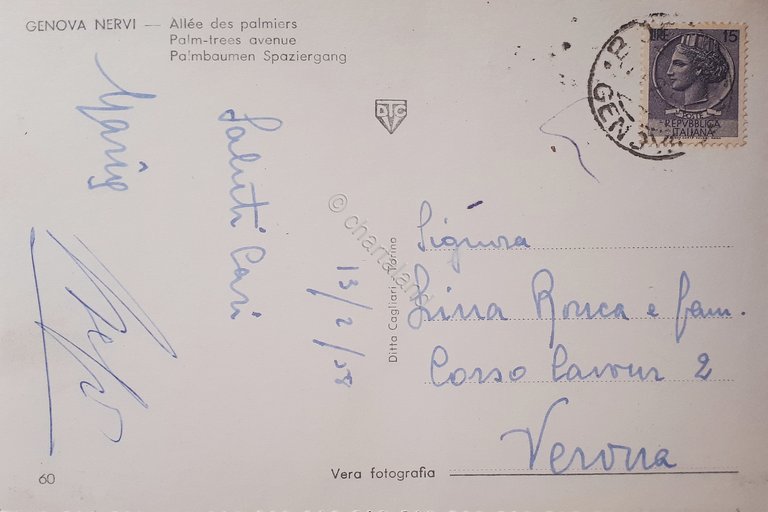 GENOVA NERVI — Allée des palmiers
Palm-trees avenue
Palmbaumen Spaziergang
Saluti Cari
13/2/58
DTC
LIRE 15
POSTE
REPVBBLICA
ITALIANA
GENOVA
© chartaland
Ditta Cagliari, Torino
Signora
Ronca e fam.
Corso Cavour 2
Verona
60
Vera fotografia